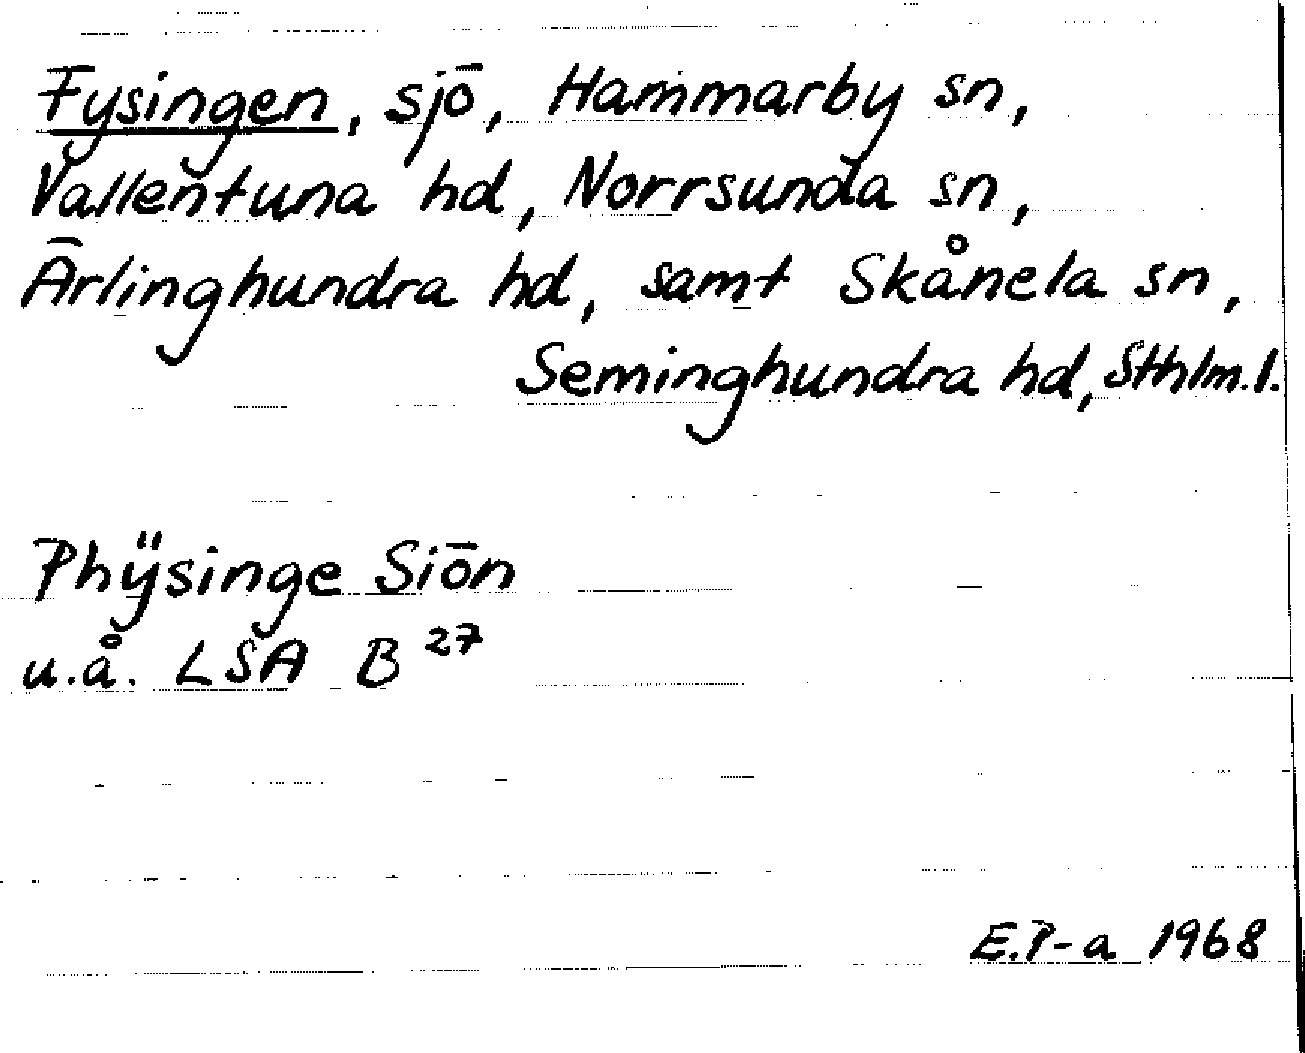 Fysingen, sjö, Hammarby sn,
Vallentuna hd, Norrsunda sn,
Ärlinghundra hd, samt Skånela sn,
Seminghundra hd, Sthlm.l.
Phÿsinge Siön
u.å. LSA B 27
E.P-a 1968